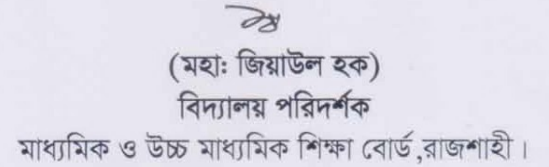 (মহাঃ জিয়াউল হক)
বিদ্যালয় পরিদর্শক
মাধ্যমিক ও উচ্চ মাধ্যমিক শিক্ষা বোর্ড,রাজশাহী।